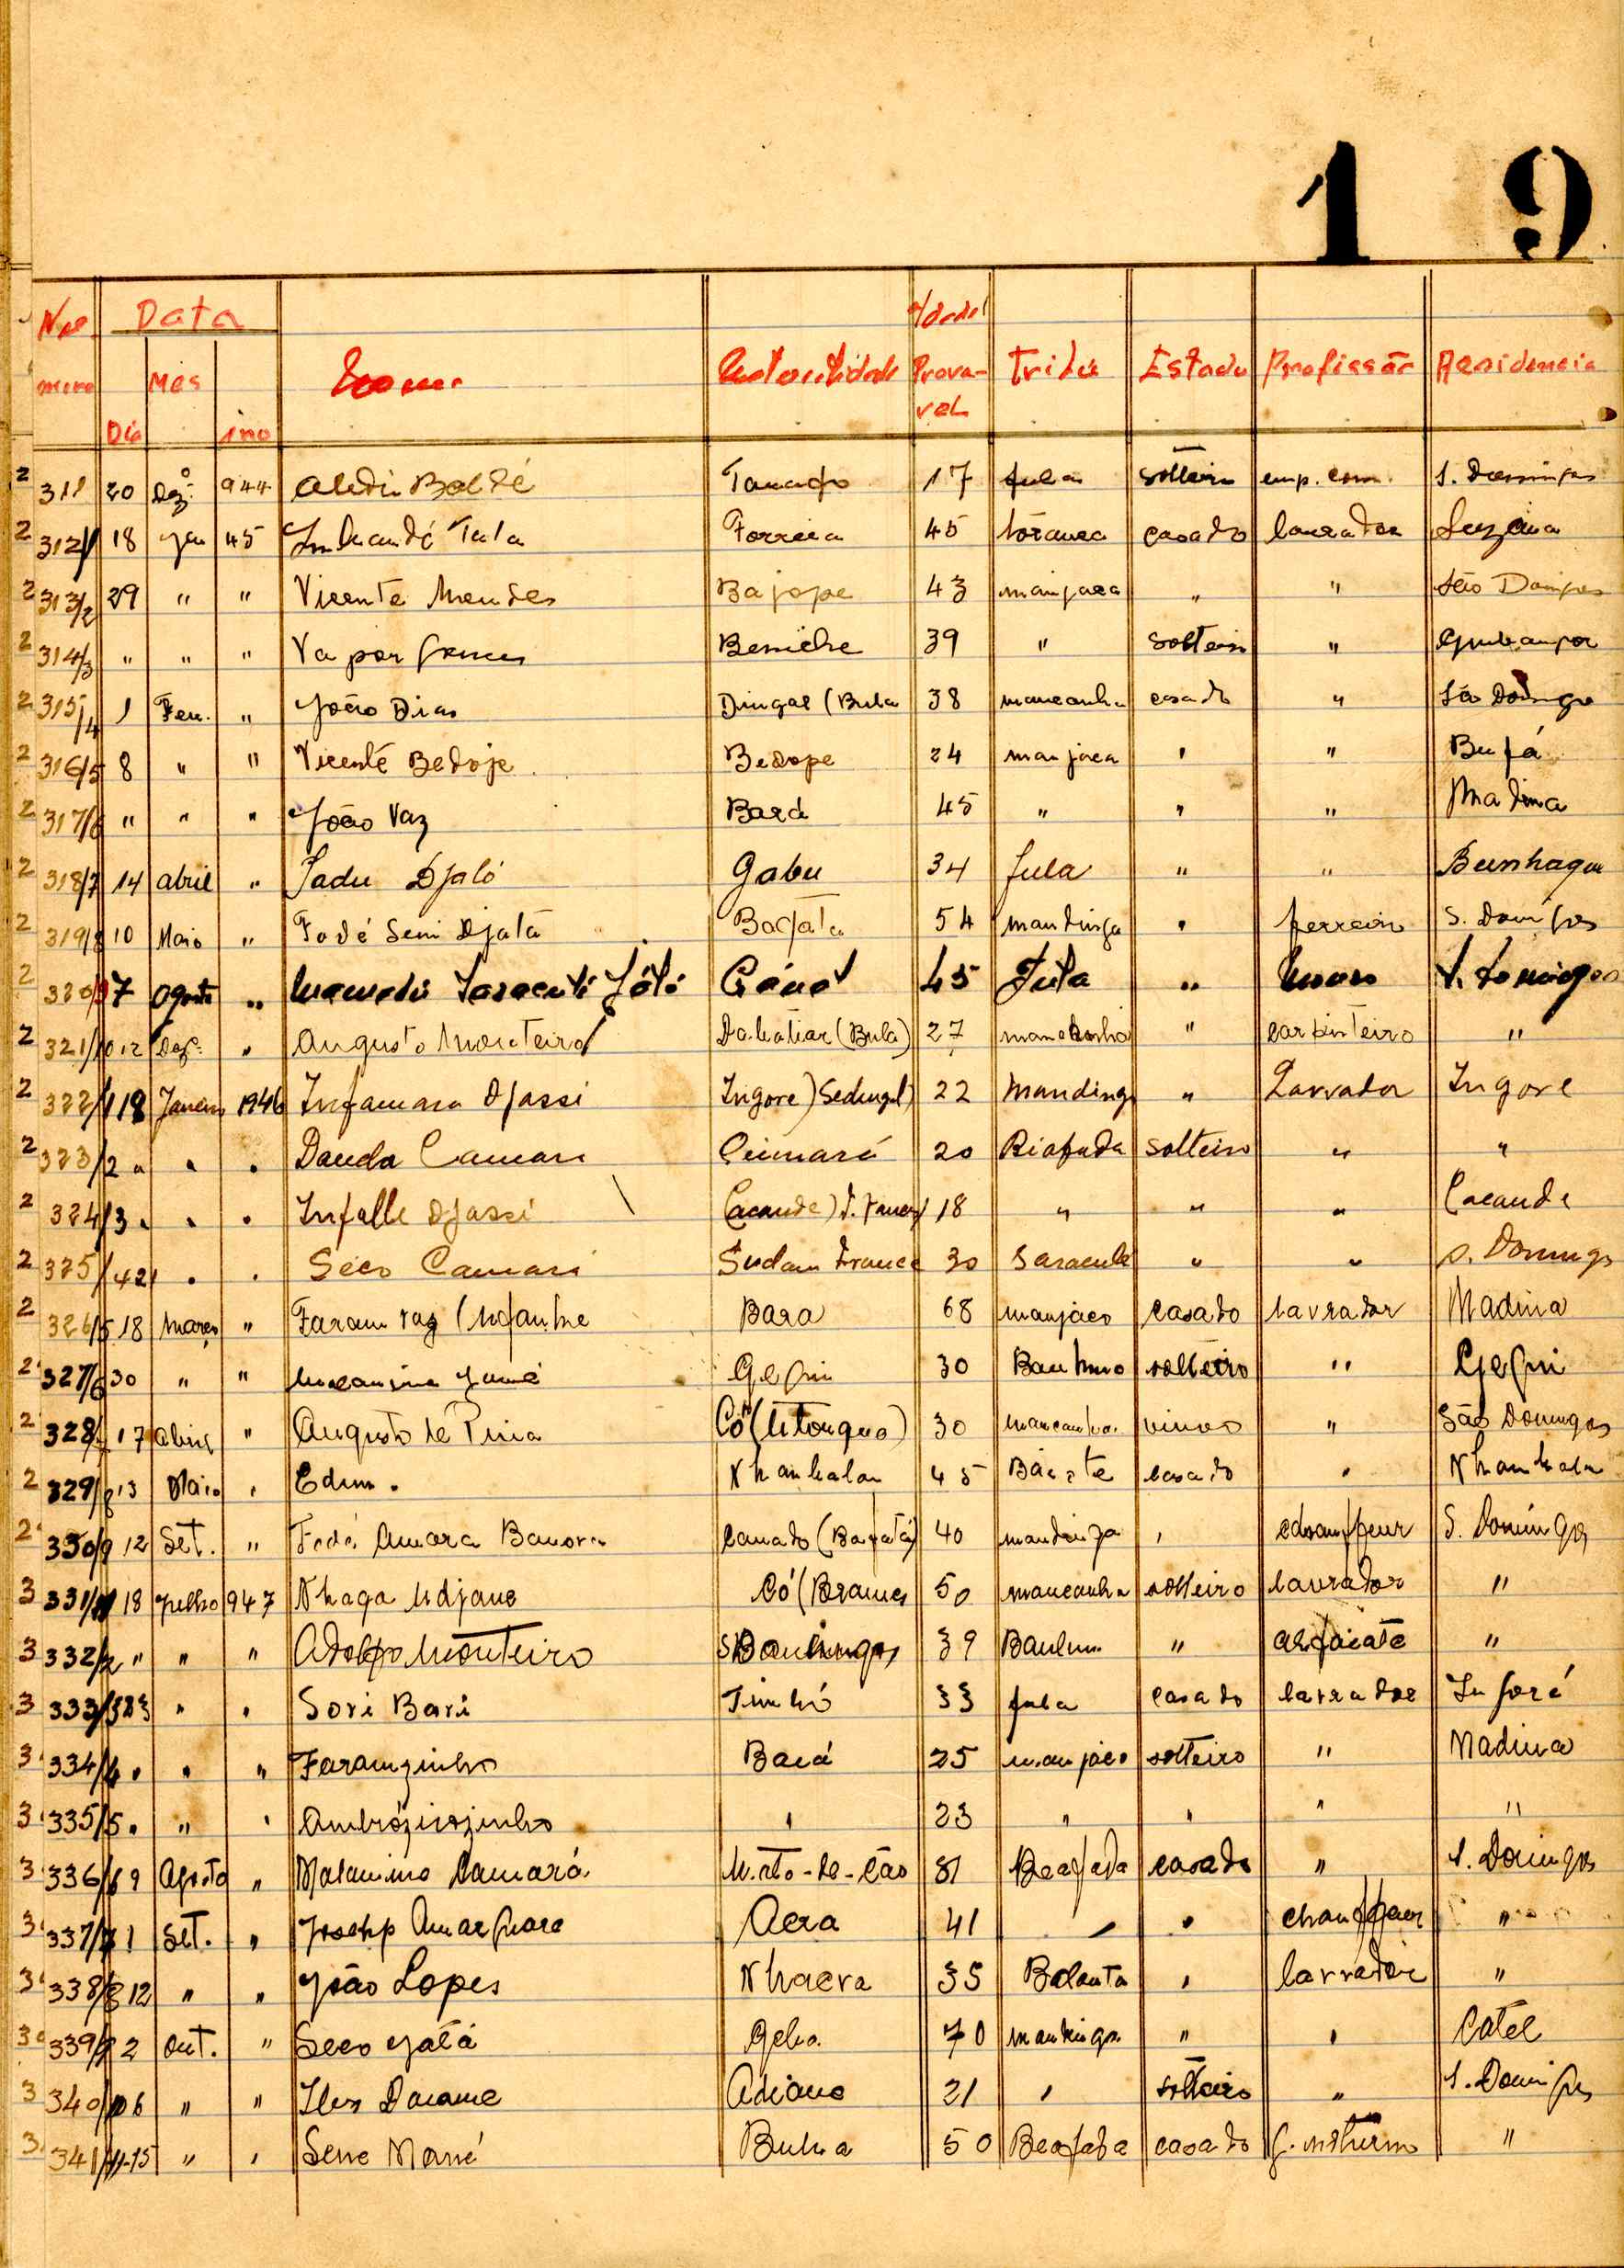 1 9
Nu mero Data Dia Mês Ano Nome Naturalidade Idade Provavel Tribu Estado Profissão Residencia
2 311 20 Dez.º 944 Aladu Baldé 17 fula solteiro emp. com. S. Domingos
2 312/1 18 Jan 45 Tala 45 casado lavrador Suzana
2 313/2 29 " " Vicente Mendes Bajope 43 manjaca " " São Domingos
2 314/3 " " " Vapor Gomes Beniche 39 " solteiro "
2 315/4 1 Fev. " João Dias Dingal (Bula 38 mancanha casado " São Domingo
2 316/5 8 " " Vicente Bedoje Bedope 24 manjaca " " Bufá
2 317/6 " " " João Vaz Bará 45 " " " Madina
2 318/7 14 Abril " Sadu Djaló Gabu 34 fula " " Bunhaque
2 319/8 10 Maio " Fodé Seni Djatá Bafata 54 mandinga " ferreiro S. Domingos
2 320/9 7 Agosto " Mamadú 45 Fula " S. Domingos
2 321/10 12 Dezº " Augusto Monteiro (Bula) 27 " carpinteiro "
2 322/1 18 Janeiro 1946 Infamara Djassi Ingore) Sedengal) 22 Manding " Lavrador Ingore
2 323/2 " " " Dauda Camara 20 Biafada solteiro " "
2 324/3 " " " Infalle Djassi Cacande) 18 " " " Cacande
2 325/4 21 " " Seco Camara Sudam France 30 Saracule " " S. Domingo
2 326/5 18 Março " Bara 68 manjaco casado lavrador Madina
2 327/6 30 " " 30 solteiro "
2 328/7 17 Abril " Augusto de Pina Có (Utonque) 30 mancanha viuvo " São Domingos
2 329/8 13 Maio " Edim. Nhambalan 45 Baiote casado " Nhambalan
2 330/9 12 Set. " Fodé Amara Banora (Bafatá) 40 mandinga " chauffeur S. Domingos
3 331/1 18 Julho 947 Nhaga Ndjane Có (Brames 50 mancanha solteiro lavrador "
3 332/2 " " " Adolfo Monteiro S. Domingos 39 " alfaiate "
3 333/3 23 " " Sori Bari Timbó 33 fula casado lavrador Ingoré
3 334/4 " " " Faramzinho Bará 25 manjaco solteiro " Madina
3 335/5 " " " Ambróziozinho " 23 " " " "
3 336/6 9 Agosto " Malamino Camará Mato-de-Cão 81 Beafada casado " S. Domingos
3 337/7 1 Set. " Josehp Amarquare Acra 41 " " chauffaer "
3 338/8 12 " " João Lopes Nhacra 35 Balanta " lavrador "
3 339/9 2 Out. " Seco Geba 70 mandinga " " Catel
3 340/10 6 " " Adiane 21 " solteiro " S. Domingos
3 341/11 15 " " Sene Mané Buba 50 Beafada casado g. noturno "